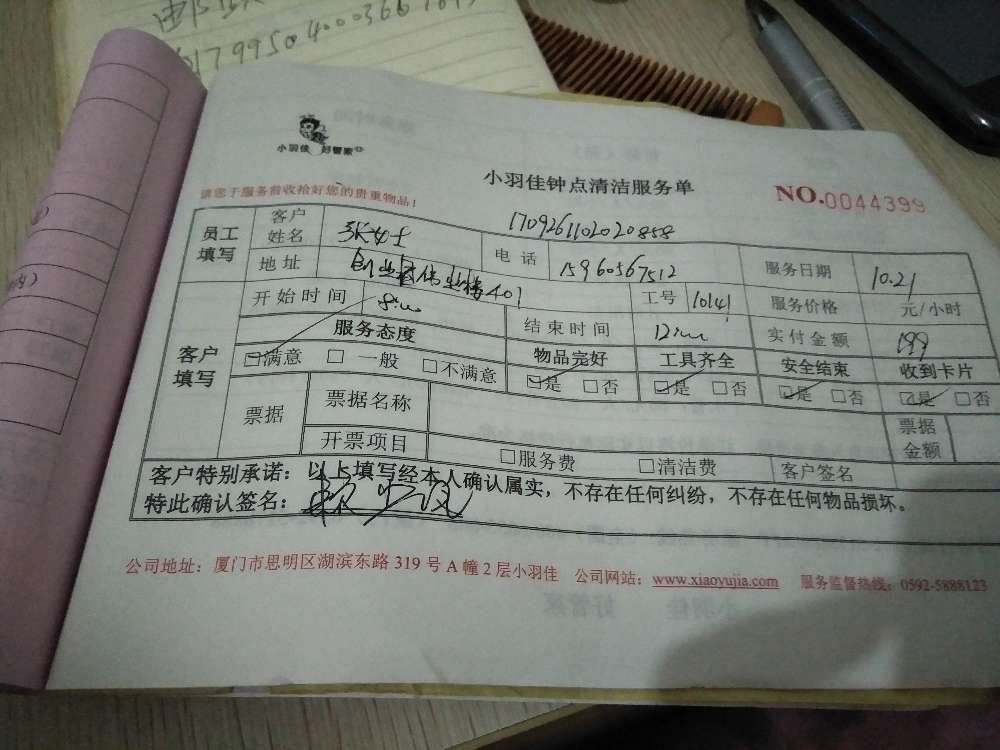 17995040003661045
小羽佳 好管家
小羽佳钟点清洁服务单
NO.0044399
请您于服务前收拾好您的贵重物品！
员工填写 客户姓名 张女士 1709261102020858
地址 401 电话 15960567512 服务日期 10.21
工号 10141 服务价格 元/小时
开始时间 8:00 结束时间 12:00 实付金额 199
客户填写 服务态度 物品完好 工具齐全 安全结束 收到卡片
☑满意 □一般 □不满意 ☑是 □否 ☑是 □否 ☑是 □否 ☑是 □否
票据 票据名称 票据金额
开票项目 □服务费 □清洁费 客户签名
客户特别承诺：以上填写经本人确认属实，不存在任何纠纷，不存在任何物品损坏。
特此确认签名：
公司地址：厦门市思明区湖滨东路 319 号 A 幢 2 层小羽佳 公司网站：www.xiaoyujia.com 服务监督热线：0592-5888123